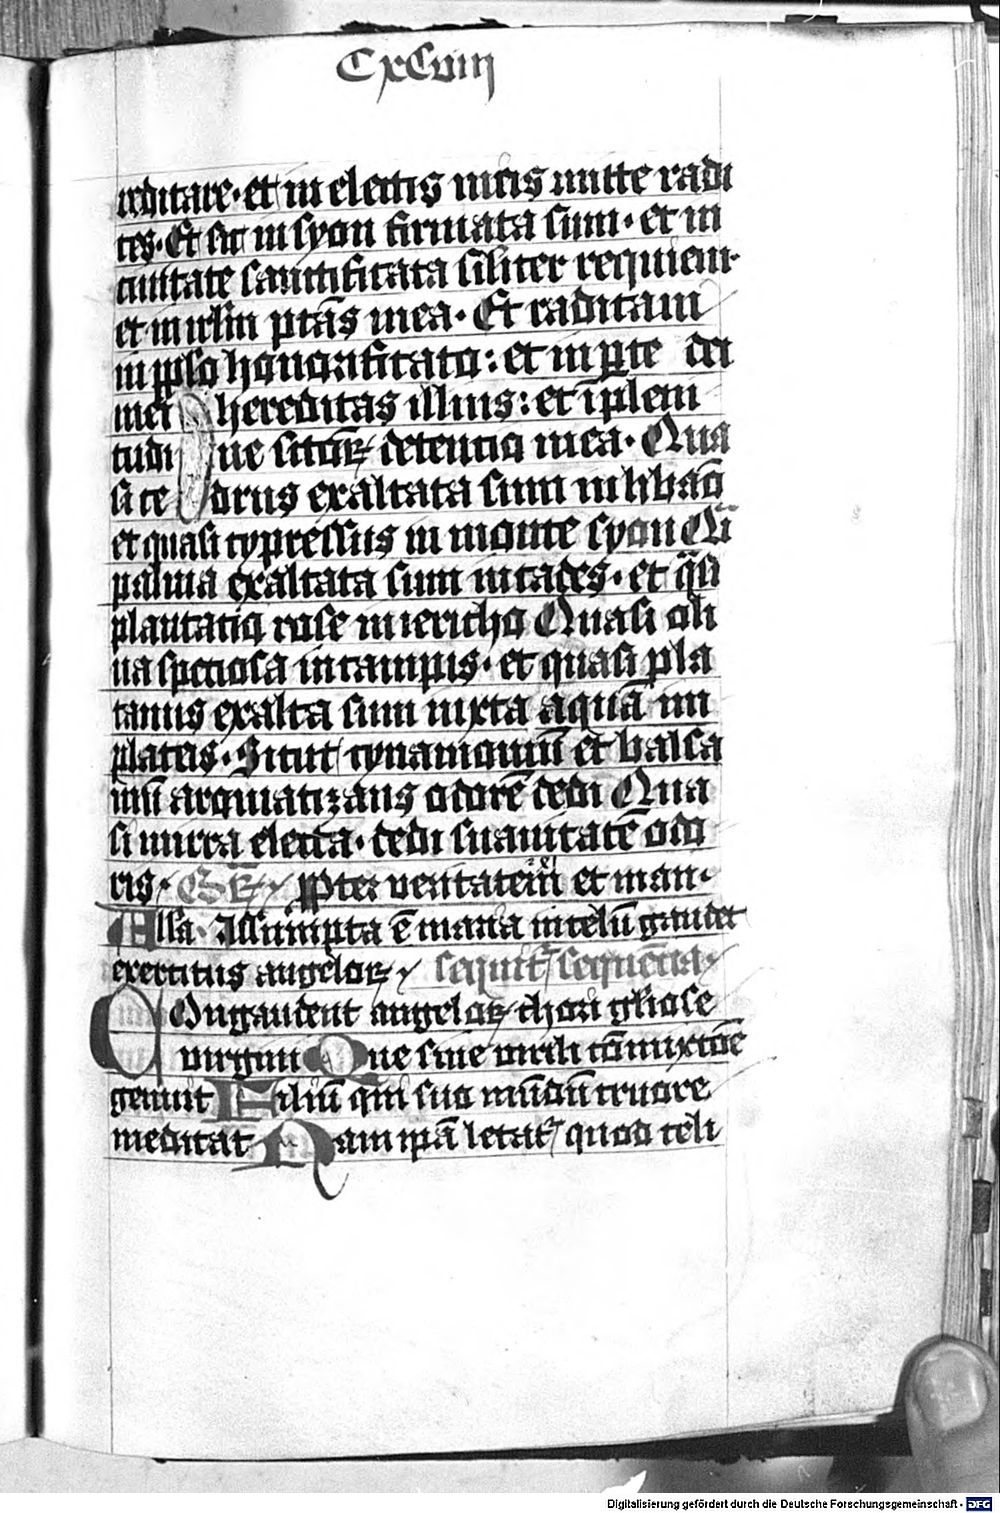 CxCviii
reditare · et in electis meis mitte radi
ces · Et sic in syon firmata sum · et in
ciuitate sanctificata siliter requieui ·
et in irlm ptãs mea · Et radicaui
in pplo honorificato : et in pte dei
mei hereditas illius : et ĩ plem
tudi ne sctoꝝ detencio mea · Qua
si ce drus exaltata sum in libão
et quasi cypressus in monte syon Qͥ
palma exaltata sum in cades · et qͣsi
plantatio rose in iericho Quasi oli
ua speciosa in campis · et quasi pla
tanus exalta sum iuxta aquã in
plateis · Sicut cynamomũ et balsa
mũ aromatizans odorẽ dedi Qua
si mirra electa · dedi suauitatẽ odo
ris · Gͬ Ppter veritatem et man ·
Alla · Assumpta ẽ maria in celũ gaudet
exercitus angeloꝝ sequit᷑ sequẽcia ·
Congaudent angeloꝝ chori gliose
virgini Que sine virili cõmixtõe
genuit Filiũ qui suo mũdũ cruore
medicat Nam ipã letat᷑ quod celi
Digitalisierung gefördert durch die Deutsche Forschungsgemeinschaft - DFG